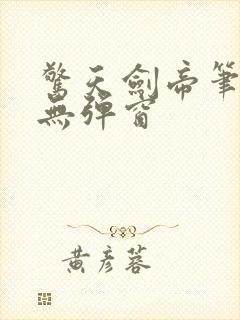 驚天劍帝筆
無彈窗
黃彥蓉